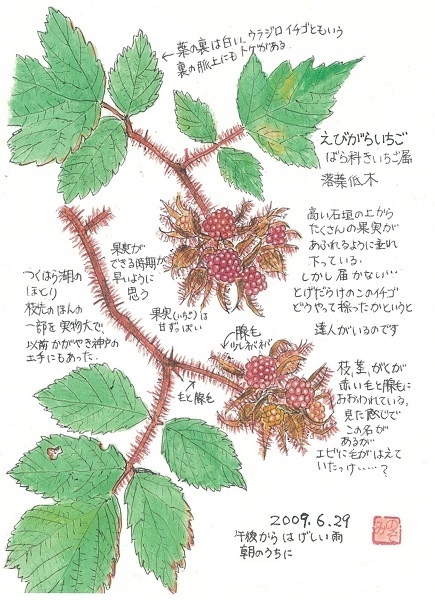 葉の裏は白い、ウラジロイチゴともいう
裏の脈上にもトゲがある
えびがらいちご
ばら科きいちご属
落葉低木
高い石垣の上から
たくさんの果実が
あふれるように垂れ
下っている.
しかし届かない…
とげだらけのこのイチゴ
どうやって採ったかというと
達人がいるのです
果実が
できる時期が
早いように
思う
つくはら湖の
ほとり
枝先のほんの
一部を実物大で、
以前かがやき神戸の
土手にもあった.
果実(いちご)は
甘ずっぱい
腺毛
ツレネバネバ
毛と腺毛
枝、茎、がくが
赤い毛と腺毛に
おおわれている。
見た感じで
この名が
あるが
エビに毛がはえて
いたっけ……?
2009.6.29
午後からはげしい雨
朝のうちに